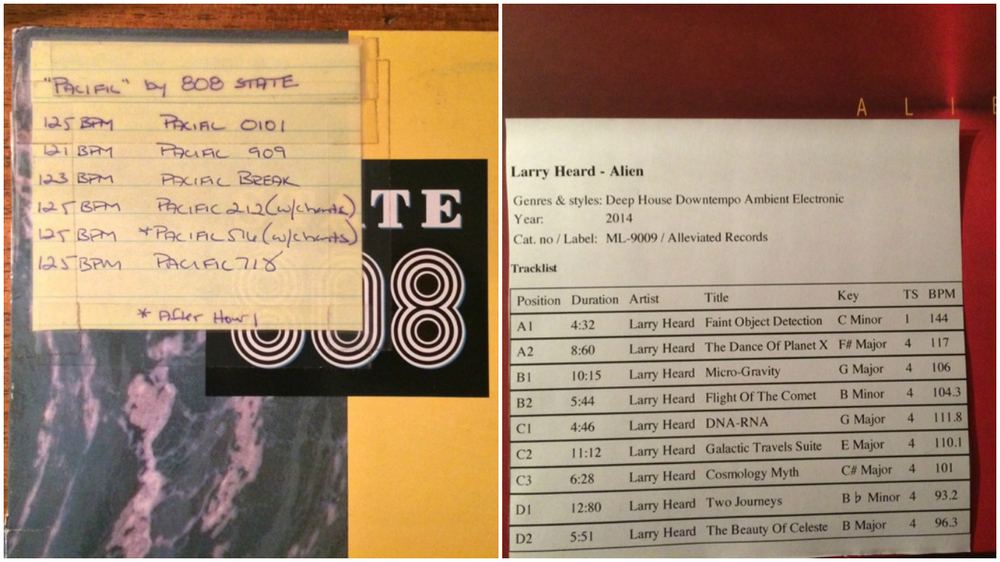 "PACIFIC" by 808 STATE
125 BPM PACIFIC 0101
121 BPM PACIFIC 909
123 BPM PACIFIC BREAK
125 BPM PACIFIC 212 (w/chants)
125 BPM *PACIFIC 516 (w/chants)
125 BPM PACIFIC 718
* After Hour!
TE
808
ALIE
Larry Heard - Alien
Genres & styles: Deep House Downtempo Ambient Electronic
Year: 2014
Cat. no / Label: ML-9009 / Alleviated Records
Tracklist
Position Duration Artist Title Key TS BPM
A1 4:32 Larry Heard Faint Object Detection C Minor 1 144
A2 8:60 Larry Heard The Dance Of Planet X F# Major 4 117
B1 10:15 Larry Heard Micro-Gravity G Major 4 106
B2 5:44 Larry Heard Flight Of The Comet B Minor 4 104.3
C1 4:46 Larry Heard DNA-RNA G Major 4 111.8
C2 11:12 Larry Heard Galactic Travels Suite E Major 4 110.1
C3 6:28 Larry Heard Cosmology Myth C# Major 4 101
D1 12:80 Larry Heard Two Journeys B ♭ Minor 4 93.2
D2 5:51 Larry Heard The Beauty Of Celeste B Major 4 96.3